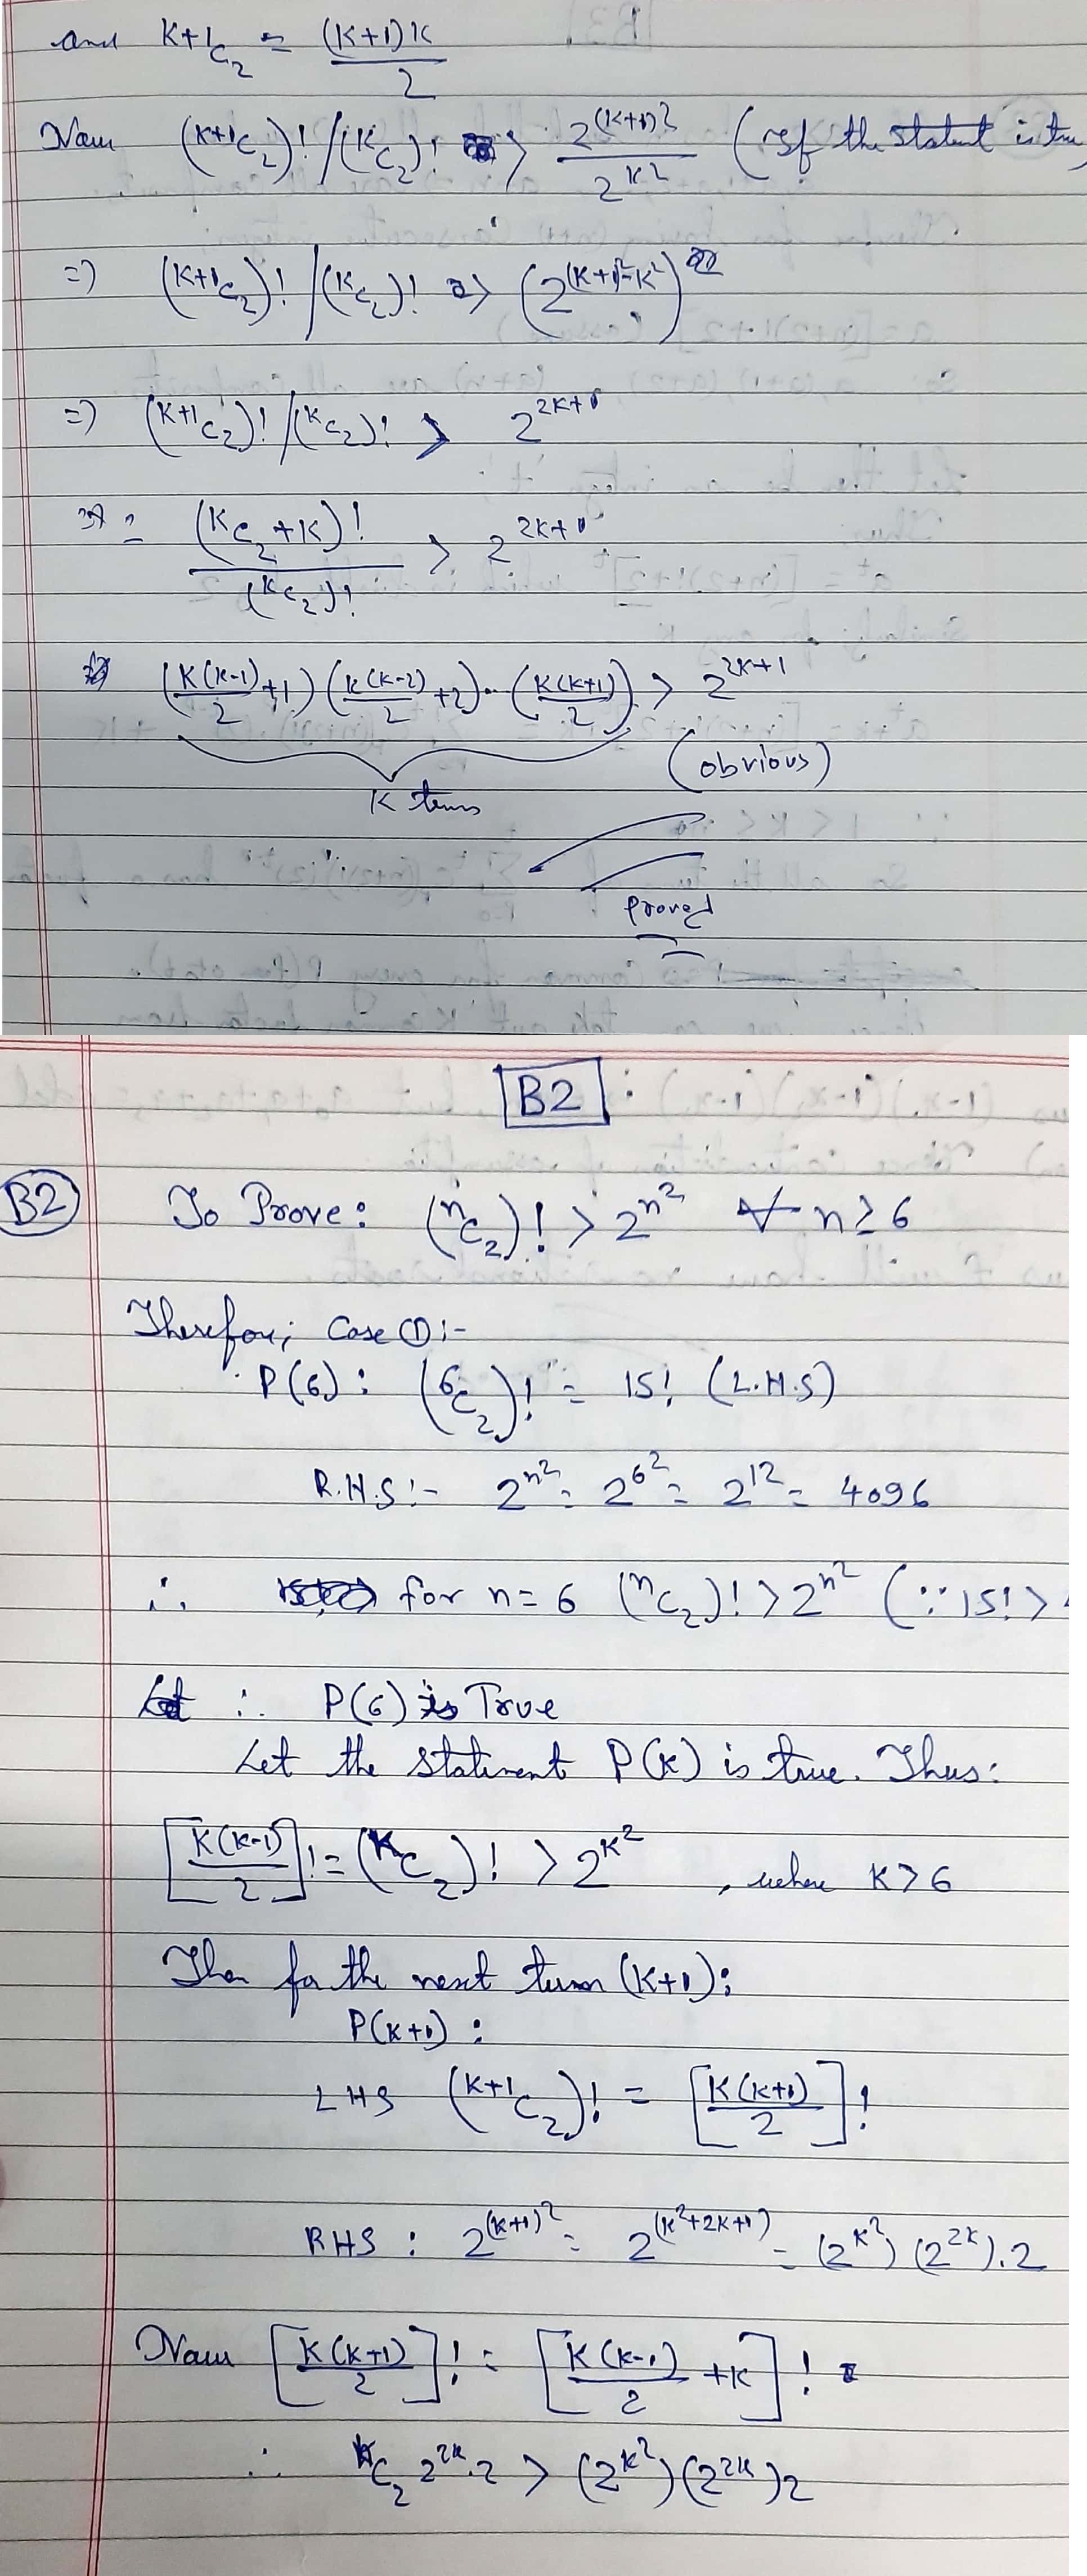 and ᵏ⁺¹C₂ = (K+1)K / 2
Now (ᵏ⁺¹C₂)! / (ᵏC₂)! > 2^(K+1)² / 2^K² (if the is true
=) (ᵏ⁺¹C₂)! / (ᵏC₂)! > (2^((K+1)²-K²))
=) (ᵏ⁺¹C₂)! / (ᵏC₂)! > 2^(2K+1)
= (ᵏC₂+K)! / (ᵏC₂)! > 2^(2K+1)
(K(K-1)/2 +1) (K(K-2)/2 +2) .. (K(K+1)/2) > 2^(2K+1)
K terms
(obvious)
Proved
B2
B2
To Prove: (ⁿC₂)! > 2^n² ∀ n ≥ 6
Therefore; Case ①:-
P(6): (⁶C₂)! = 15! (L.H.S)
R.H.S:- 2^n² = 2^6² = 2^12 = 4096
∴ for n = 6 (ⁿC₂)! > 2^n² (∵ 15! >
∴ P(6) is True
Let the statement P(K) is true. Thus:
[K(K-1)/2]! = (ᵏC₂)! > 2^K² , where K > 6
Then for the next term (K+1):
P(K+1) :
LHS (ᵏ⁺¹C₂)! = [K(K+1)/2]!
RHS : 2^(K+1)² = 2^(K²+2K+1) = (2^K²) (2^2K).2
Now [K(K+1)/2]! = [K(K-1)/2 +K]!
∴ ᵏC₂ 2^2K.2 > (2^K²)(2^2K)2